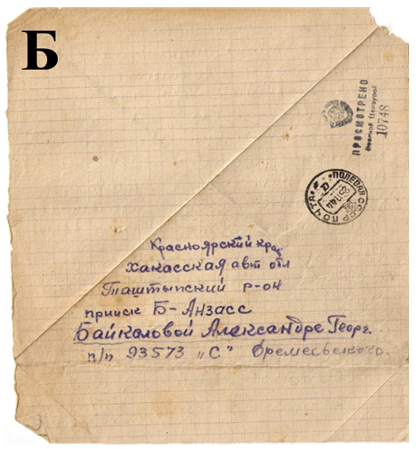 Б
ПРОСМОТРЕНО
Военной Цензурой
10748
ПОЛЕВАЯ
СССР ПОЧТА
Красноярский край
Хакасская авт обл
Таштыпский р-он
прииск Б-Анзасс
Байкаловой Александре Георг.
п/п 93573 „С"